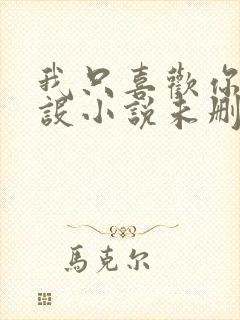 我只喜歡你
設小說未刪
馬克尔